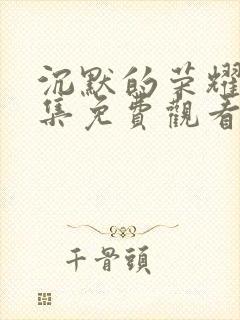 沉默的荣耀
集免費觀看
千骨頭